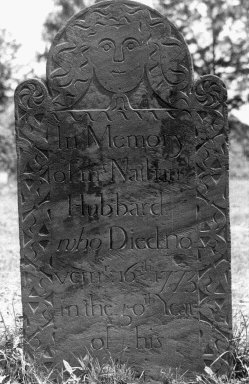 In Memory
of mr Nathan
Hubbard
who Died no
vem'r 16th 1773
in the 50th Year
of his